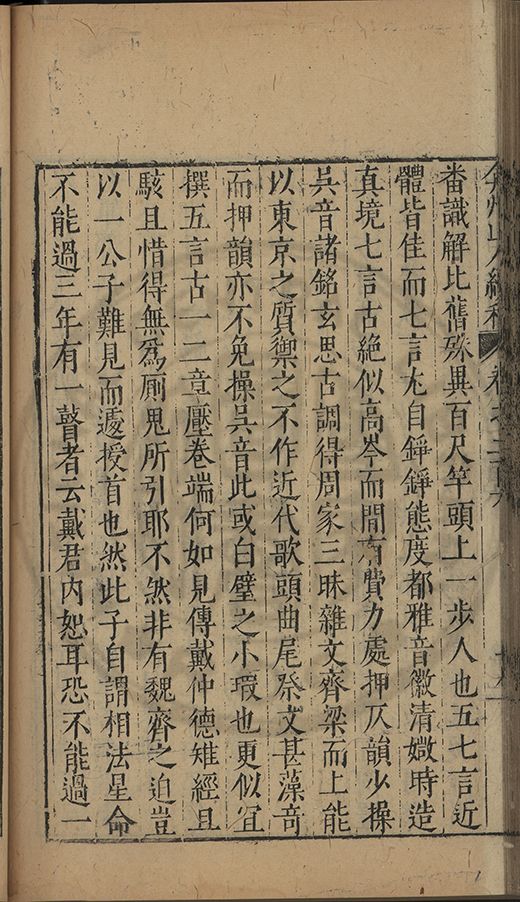 弇州山人續稿 卷之二百六
畨識解比舊殊異百尺竿頭上一步人也五七言近
體皆佳而七言尤自錚錚態度都雅音徽清媺時造
真境七言古絕似高岑而間有費力處押仄韻少操
吳音諸銘玄思古調得周家三昧雜文齊梁而上能
以東京之質禦之不作近代歌頭曲尾祭文甚藻竒
而押韻亦不免操吳音此或白璧之小瑕也更似宜
撰五言古一二章壓卷端何如見傳戴仲德雉經且
駭且惜得無爲厠鬼所引耶不然非有魏齊之迫豈
以一公子難見而遽授首也然此子自謂相法星命
不能過三年有一瞽者云戴君内恕耳恐不能過一